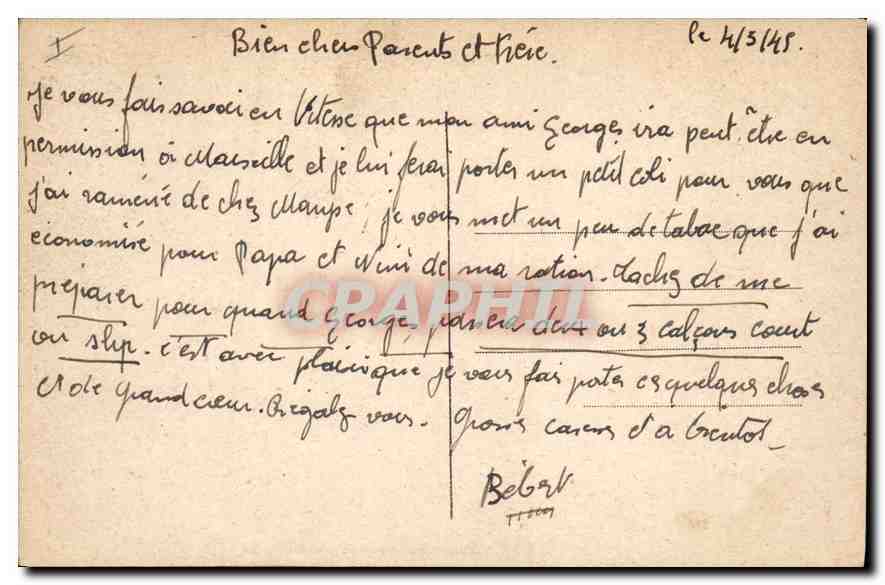 I
Bien chers Parents et frère.
le 4/3/45.
Je vous fais savoir en Vitesse que mon ami Georges ira peut-être en
permission à Marseille et je lui ferai porter un petit coli pour vous que
j'ai ramené de chez ; je vous met un peu de tabac que j'ai
économisé pour Papa et Nini de ma ration. Tachez de me
préparer pour quand Georges passera deux ou 3 calçons court
ou slip. c'est avec plaisir que je vous fais porter ces quelques choses
et de grand cœur. Régalez vous. Grosses caresses et a bientot
Bébert
CPARHTI